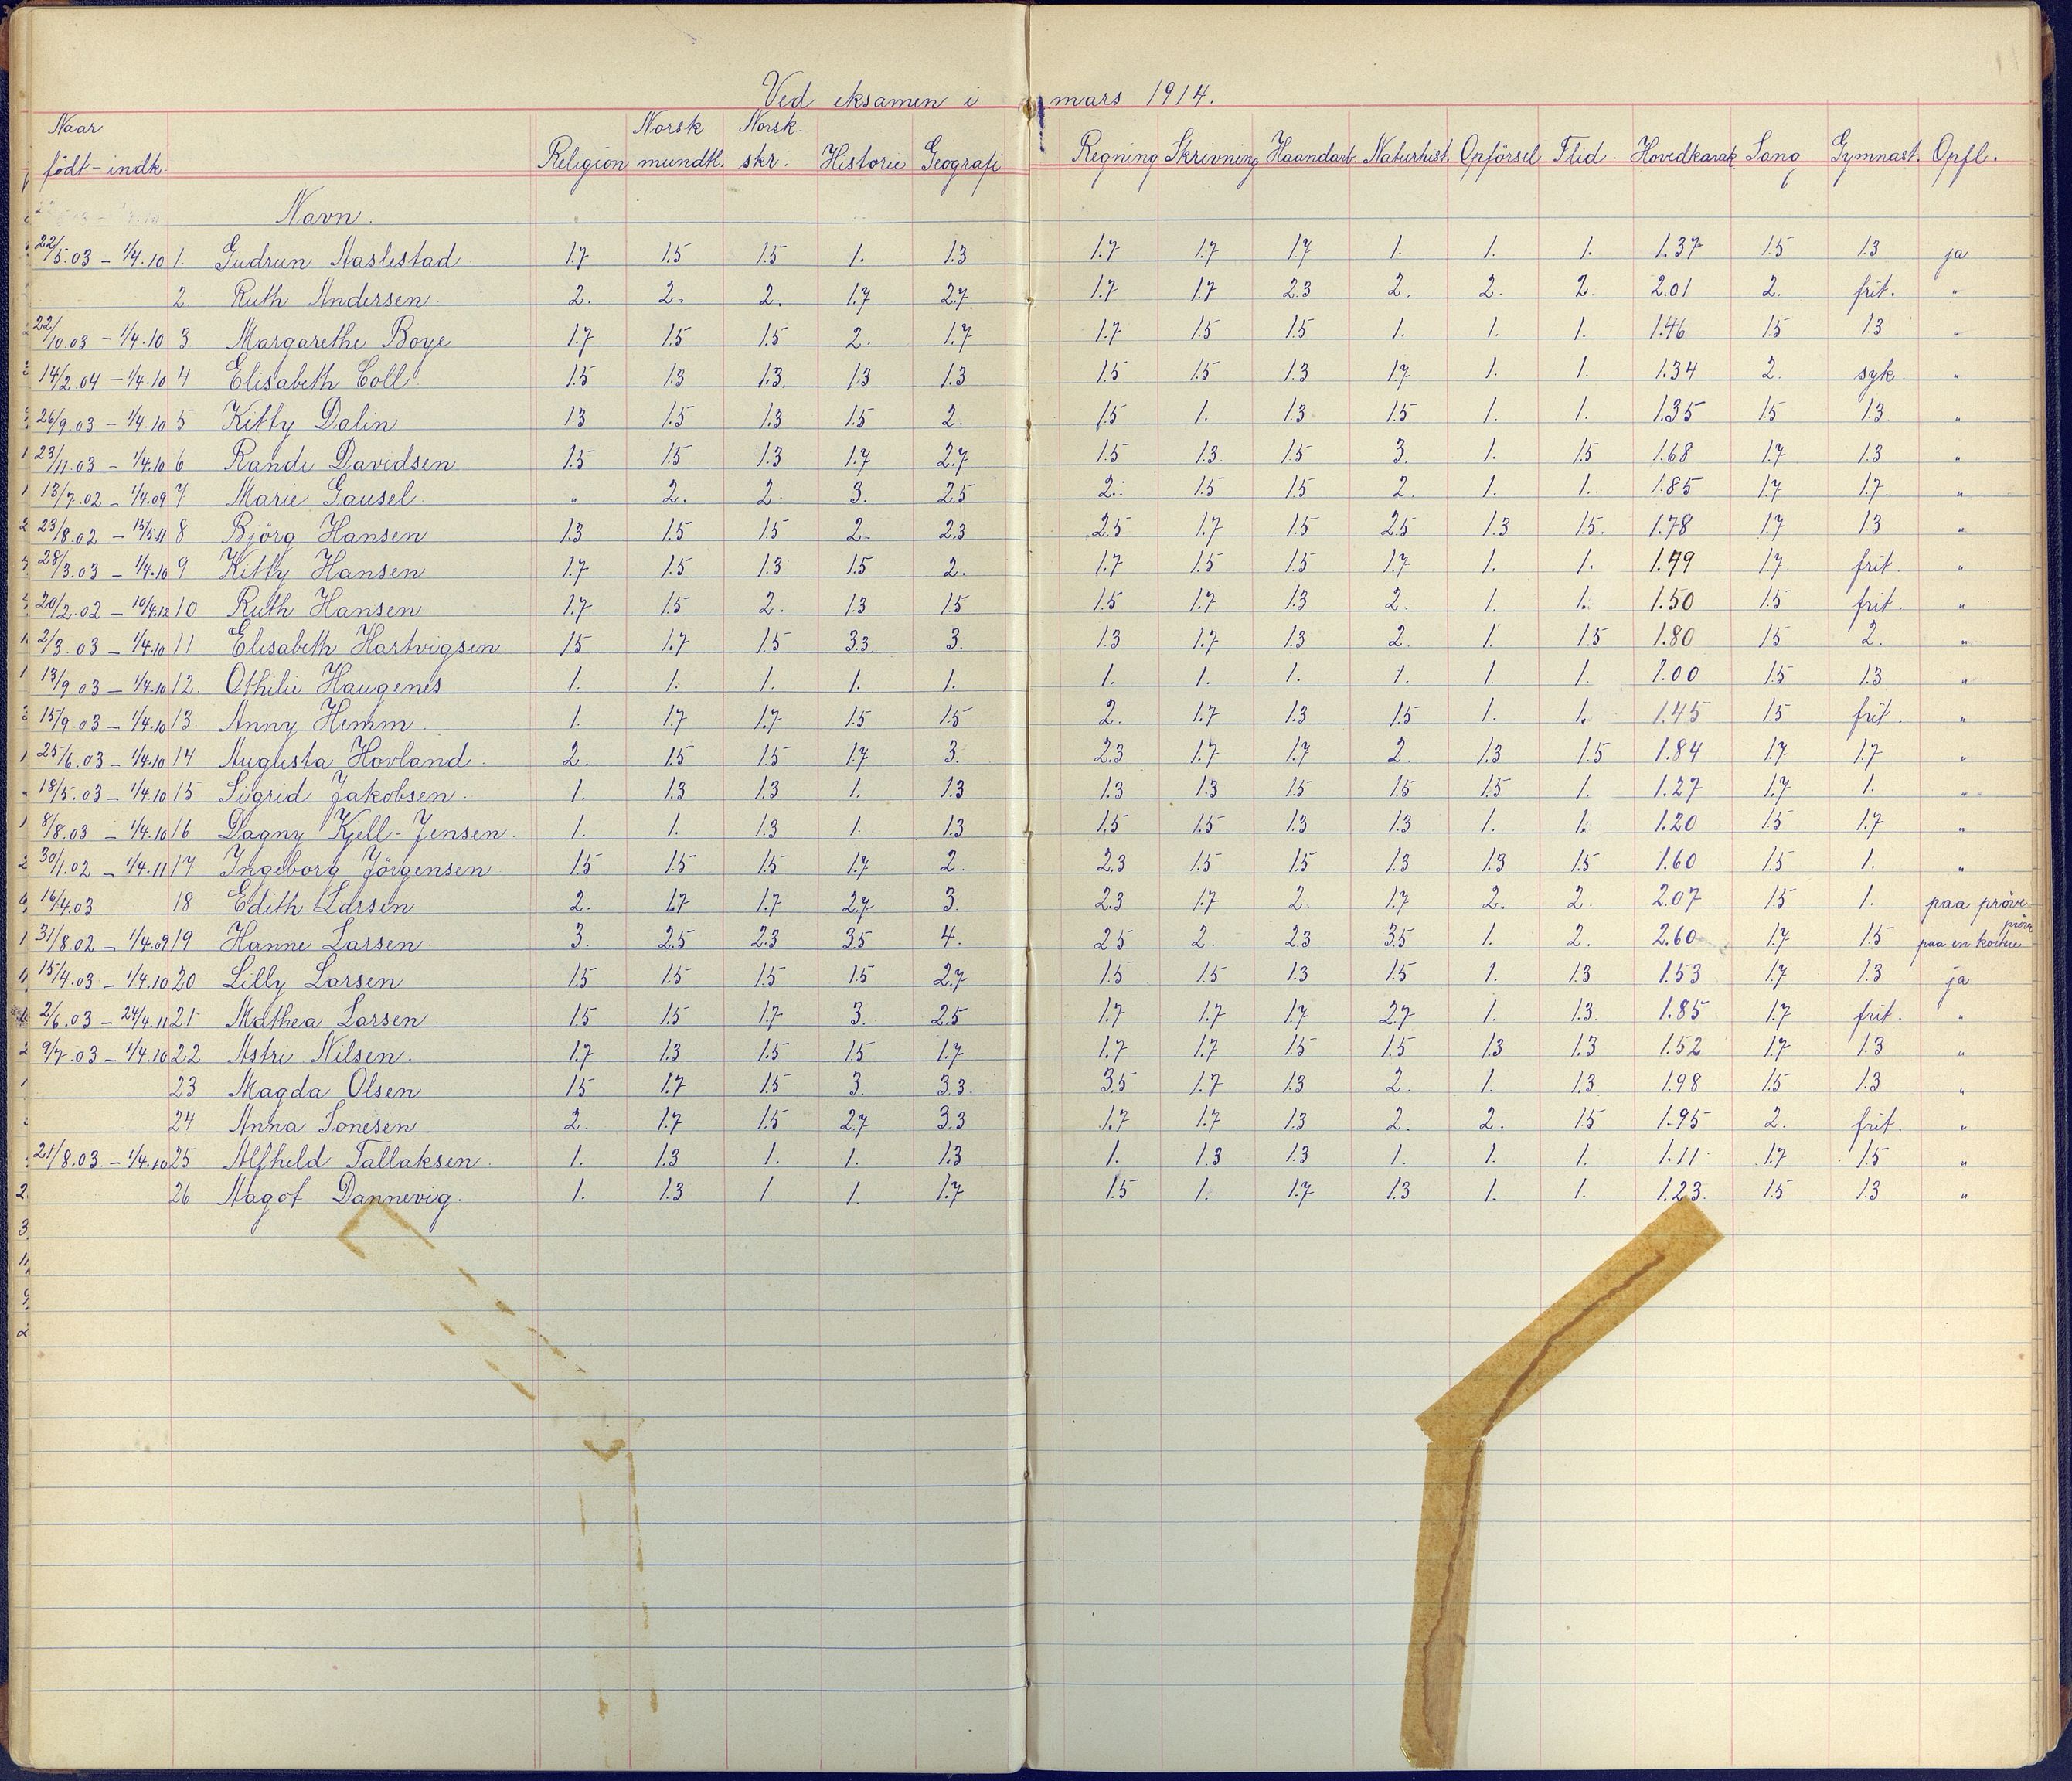 Ved eksamen i mars 1914.
Naar Norsk Norsk.
född-indk. Religion mundtl. skr. Historie Geografi Regning Skrivning Haandarb. Naturhist. Opförsel Flid. Hovedkarak. Sang Gymnast. Opfl.
Navn.
22/5.03 – 1/4.10 1. Gudrun Aaslestad 1.7 1.5 1.5 1. 1.3 1.7 1.7 1.7 1. 1. 1. 1.37 1.5 1.3 ja
2. Ruth Andersen 2. 2. 2. 1.7 2.7 1.7 1.7 2.3 2. 2. 2. 2.01 2. frit. "
22/10.03 – 1/4.10 3. Margarethe Boye 1.7 1.5 1.5 2. 1.7 1.7 1.5 1.5 1. 1. 1. 1.46 1.5 1.3 "
14/2.04 – 1/4.10 4 Elisabeth Coll 1.5 1.3 1.3. 1.3 1.3 1.5 1.5 1.3 1.7 1. 1. 1.34 2. syk "
26/9.03 – 1/4.10 5 Kitty Dalin 1.3 1.5 1.3 1.5 2. 1.5 1. 1.3 1.5 1. 1. 1.35 1.5 1.3 "
23/11.03 – 1/4.10 6 Randi Davidsen 1.5 1.5 1.3 1.7 2.7 1.5 1.3 1.5 3. 1. 1.5 1.68 1.7 1.3 "
13/7.02 – 1/4.09 7 Marie Gausel " 2. 2. 3. 2.5 2. 1.5 1.5 2. 1. 1. 1.85 1.7 1.7 "
23/8.02 – 15/5.11 8 Björg Hansen 1.3 1.5 1.5 2. 2.3 2.5 1.7 1.5 2.5 1.3 1.5. 1.78 1.7 1.3 "
28/3.03 – 1/4.10 9 Kitty Hansen 1.7 1.5 1.3 1.5 2. 1.7 1.5 1.5 1.7 1. 1. 1.49 1.7 frit "
20/2.02 – 10/4.12 10 Ruth Hansen 1.7 1.5 2. 1.3 1.5 1.5 1.7 1.3 2. 1. 1. 1.50 1.5 frit. "
2/3.03 – 1/4.10 11 Elisabeth Hartvigsen 1.5 1.7 1.5 3.3 3. 1.3 1.7 1.3 2. 1. 1.5 1.80 1.5 2. "
13/9.03 – 1/4.10 12. Othilie Haugenes 1. 1. 1. 1. 1. 1. 1. 1. 1. 1. 1. 1.00 1.5 1.3 "
15/9.03 – 1/4.10 13. Anny Hemm 1. 1.7 1.7 1.5 1.5 2. 1.7 1.3 1.5 1. 1. 1.45 1.5 frit. "
25/6.03 – 1/4.10 14 Augusta Hovland. 2. 1.5 1.5 1.7 3. 2.3 1.7 1.7 2. 1.3 1.5 1.84 1.7 1.7 "
18/5.03 – 1/4.10 15 Sigrid Jakobsen. 1. 1.3 1.3 1. 1.3 1.3 1.3 1.5 1.5 1.5 1. 1.27 1.7 1. "
8/8.03 – 1/4.10 16 Dagny Kjell-Jensen. 1. 1. 1.3 1. 1.3 1.5 1.5 1.3 1.3 1. 1. 1.20 1.5 1.7 "
30/1.02 – 1/4.11 17 Ingeborg Jörgensen 1.5 1.5 1.5 1.7 2. 2.3 1.5 1.5 1.3 1.3 1.5 1.60 1.5 1. "
16/4.03 18 Edith Larsen 2. 1.7 1.7 2.7 3. 2.3 1.7 2. 1.7 2. 2. 2.07 1.5 1. paa pröve
31/8.02 – 1/4.09 19 Hanne Larsen. 3. 2.5 2.3 3.5 4. 2.5 2. 2.3 3.5 1. 2. 2.60 1.7 1.5 paa en kortere pröve
15/4.03 – 1/4.10 20 Lilly Larsen 1.5 1.5 1.5 1.5 2.7 1.5 1.5 1.3 1.5 1. 1.3 1.53 1.7 1.3 ja
2/6.03 – 24/4.11 21 Mathea Larsen 1.5 1.5 1.7 3. 2.5 1.7 1.7 1.7 2.7 1. 1.3 1.85 1.7 frit. "
9/7.03 – 1/4.10 22 Astri Nilsen. 1.7 1.3 1.5 1.5 1.7 1.7 1.7 1.5 1.5 1.3 1.3 1.52 1.7 1.3 "
23 Magda Olsen 1.5 1.7 1.5 3. 3.3. 3.5 1.7 1.3 2. 1. 1.3 1.98 1.5 1.3 "
24 Anna Sonesen 2. 1.7 1.5 2.7 3.3 1.7 1.7 1.3 2. 2. 1.5 1.95 2. frit. "
21/8.03. – 1/4.10 25 Alfhild Tallaksen. 1. 1.3 1. 1. 1.3 1. 1.3 1.3 1. 1. 1. 1.11 1.7 1.5 "
26 Aagot Dannevig. 1. 1.3 1. 1. 1.7 1.5 1. 1.7 1.3 1. 1. 1.23. 1.5 1.3 "